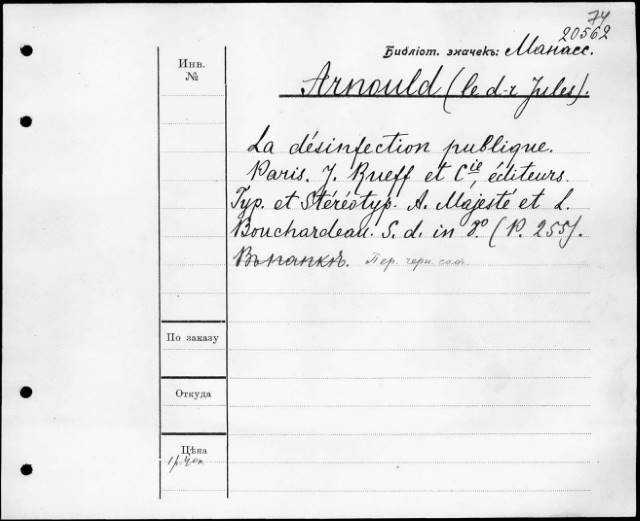 74
20562
Библіот. значекъ: Манасс.
Инв.
№
Arnould (le d-r Jules).
La désinfection publique.
Paris. J. Rueff et Cie éditeurs.
Typ. et Stéréotyp. A. Majesté et L.
Bouchardeau. S. d. in 8º. (P. 255).
Въ папкѣ. Пер. черн.
По заказу
Откуда
Цѣна